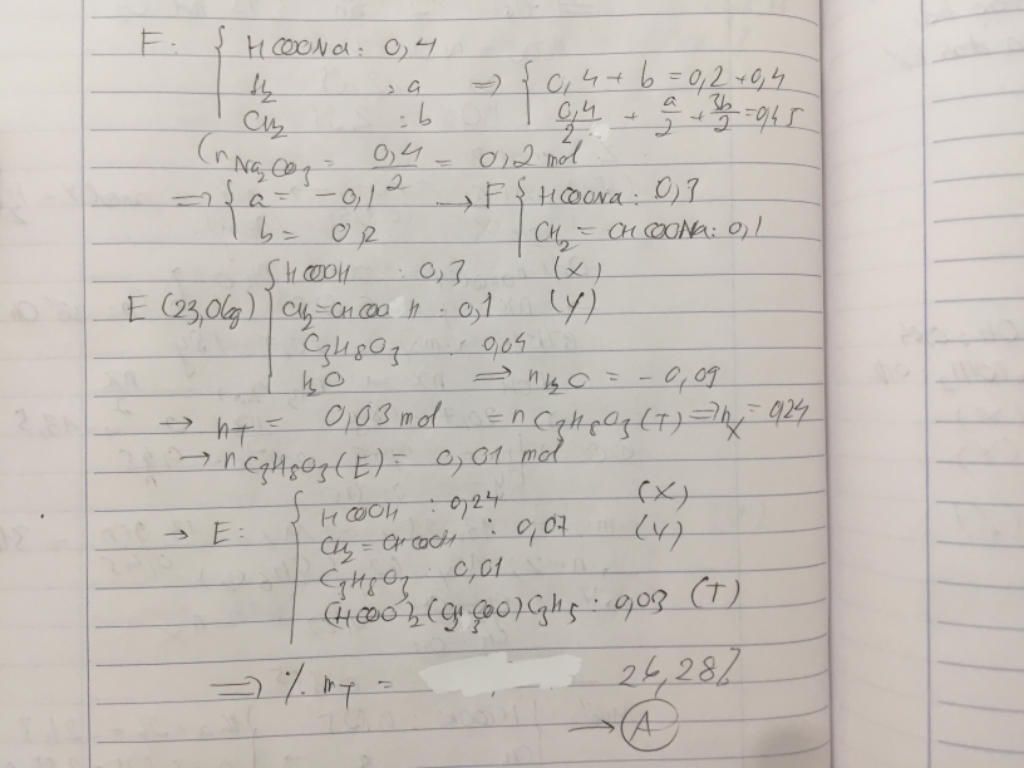 F: { HCOONa: 0,4
H2 : a => { 0,4 + b = 0,2 + 0,4
CH2 : b 0,4/2 + a/2 + 3b/2 = 0,45
(nNa2CO3 = 0,4/2 = 0,2 mol
=> { a = -0,1 → F { HCOONa: 0,3
b = 0,2 CH2 = CHCOONa: 0,1
E (23,06g) { HCOOH : 0,3 (X)
CH2=CHCOOH : 0,1 (Y)
C3H8O3 : 0,04
H2O => nH2O = -0,09
→ nT = 0,03 mol = nC3H8O3(T) => nX = 0,24
→ nC3H8O3(E) = 0,01 mol
→ E: { HCOOH : 0,24 (X)
CH2 = CHCOOH : 0,07 (Y)
C3H8O3 : 0,01
(HCOO)2(C2H3COO)C3H5 : 0,03 (T)
=> % mT = 26,28%
→ A